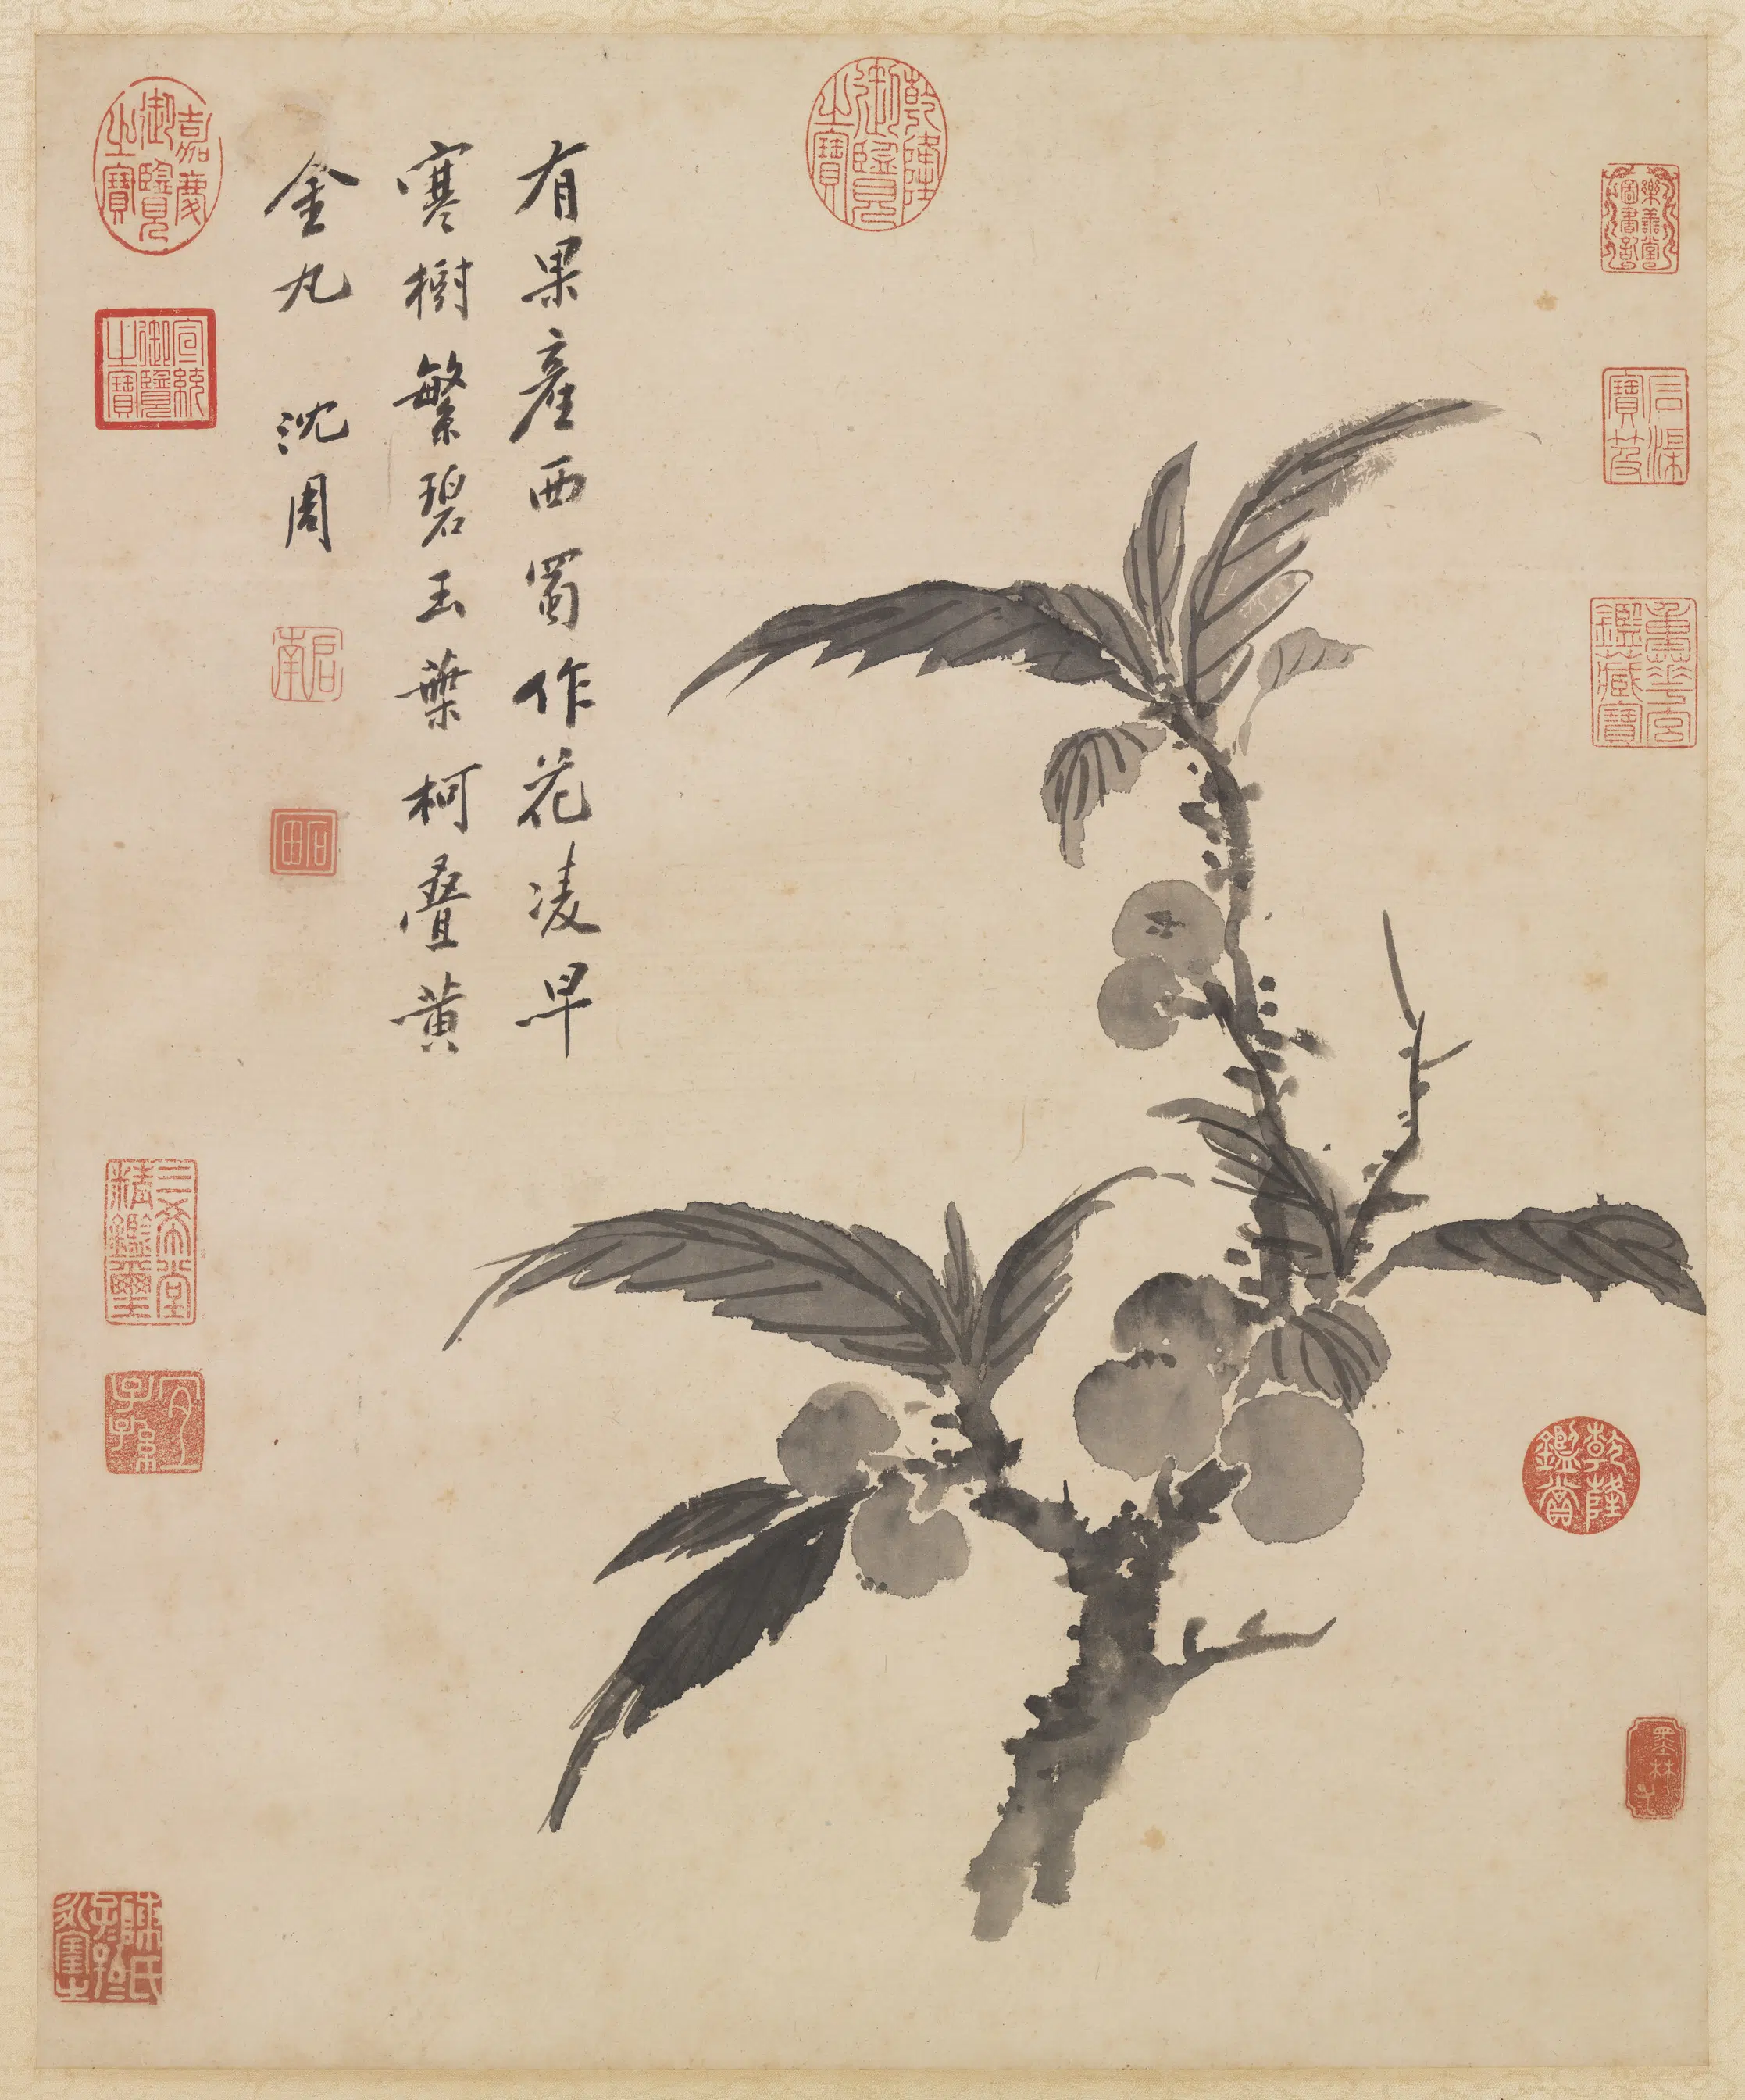 有果產西蜀作花凌早
寒樹繁碧玉葉柯疊黃
金丸
沈周
啟南
石田
乾隆御覽之寶
嘉慶御覽之寶
宣統御覽之寶
樂善堂圖書記
石渠寶笈
重華宮鑑藏寶
三希堂精鑑璽
宜子孫
乾隆鑑賞
墨林